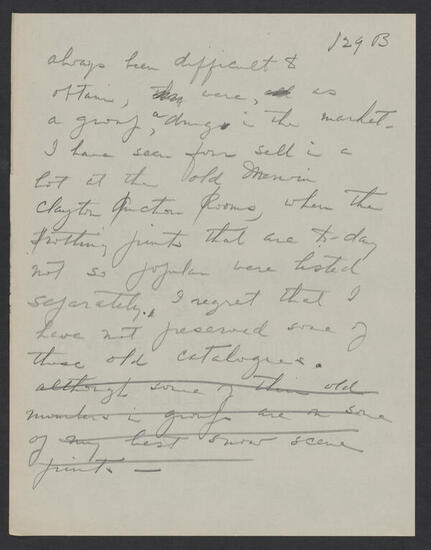 129 B
always been difficult to
obtain, they were, as
a group, a drug in the market.
I have seen four sell in a
lot at the old Merwin
Clayton Auction Rooms, when the
trotting prints that are to-day
not so popular were listed
separately. I regret that I
have not preserved some of
these old catalogues.
although some of this old
numbers in group are on some
of my best snow scene
prints —